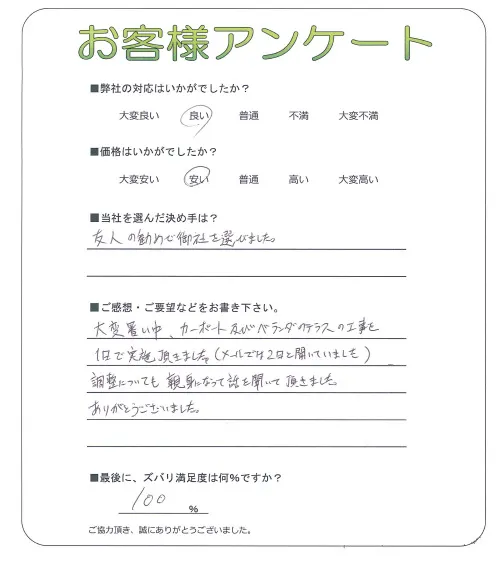 お客様アンケート
■弊社の対応はいかがでしたか？
大変良い 良い 普通 不満 大変不満
■価格はいかがでしたか？
大変安い 安い 普通 高い 大変高い
■当社を選んだ決め手は？
友人の勧めで御社を選びました。
■ご感想・ご要望などをお書き下さい。
大変暑い中、カーポート及びベランダのテラスの工事を
1日で実施頂きました。(メールでは2日と聞いていました)
調整についても親身になって話を聞いて頂きました。
ありがとうございました。
■最後に、ズバリ満足度は何%ですか？
100 %
ご協力頂き、誠にありがとうございました。